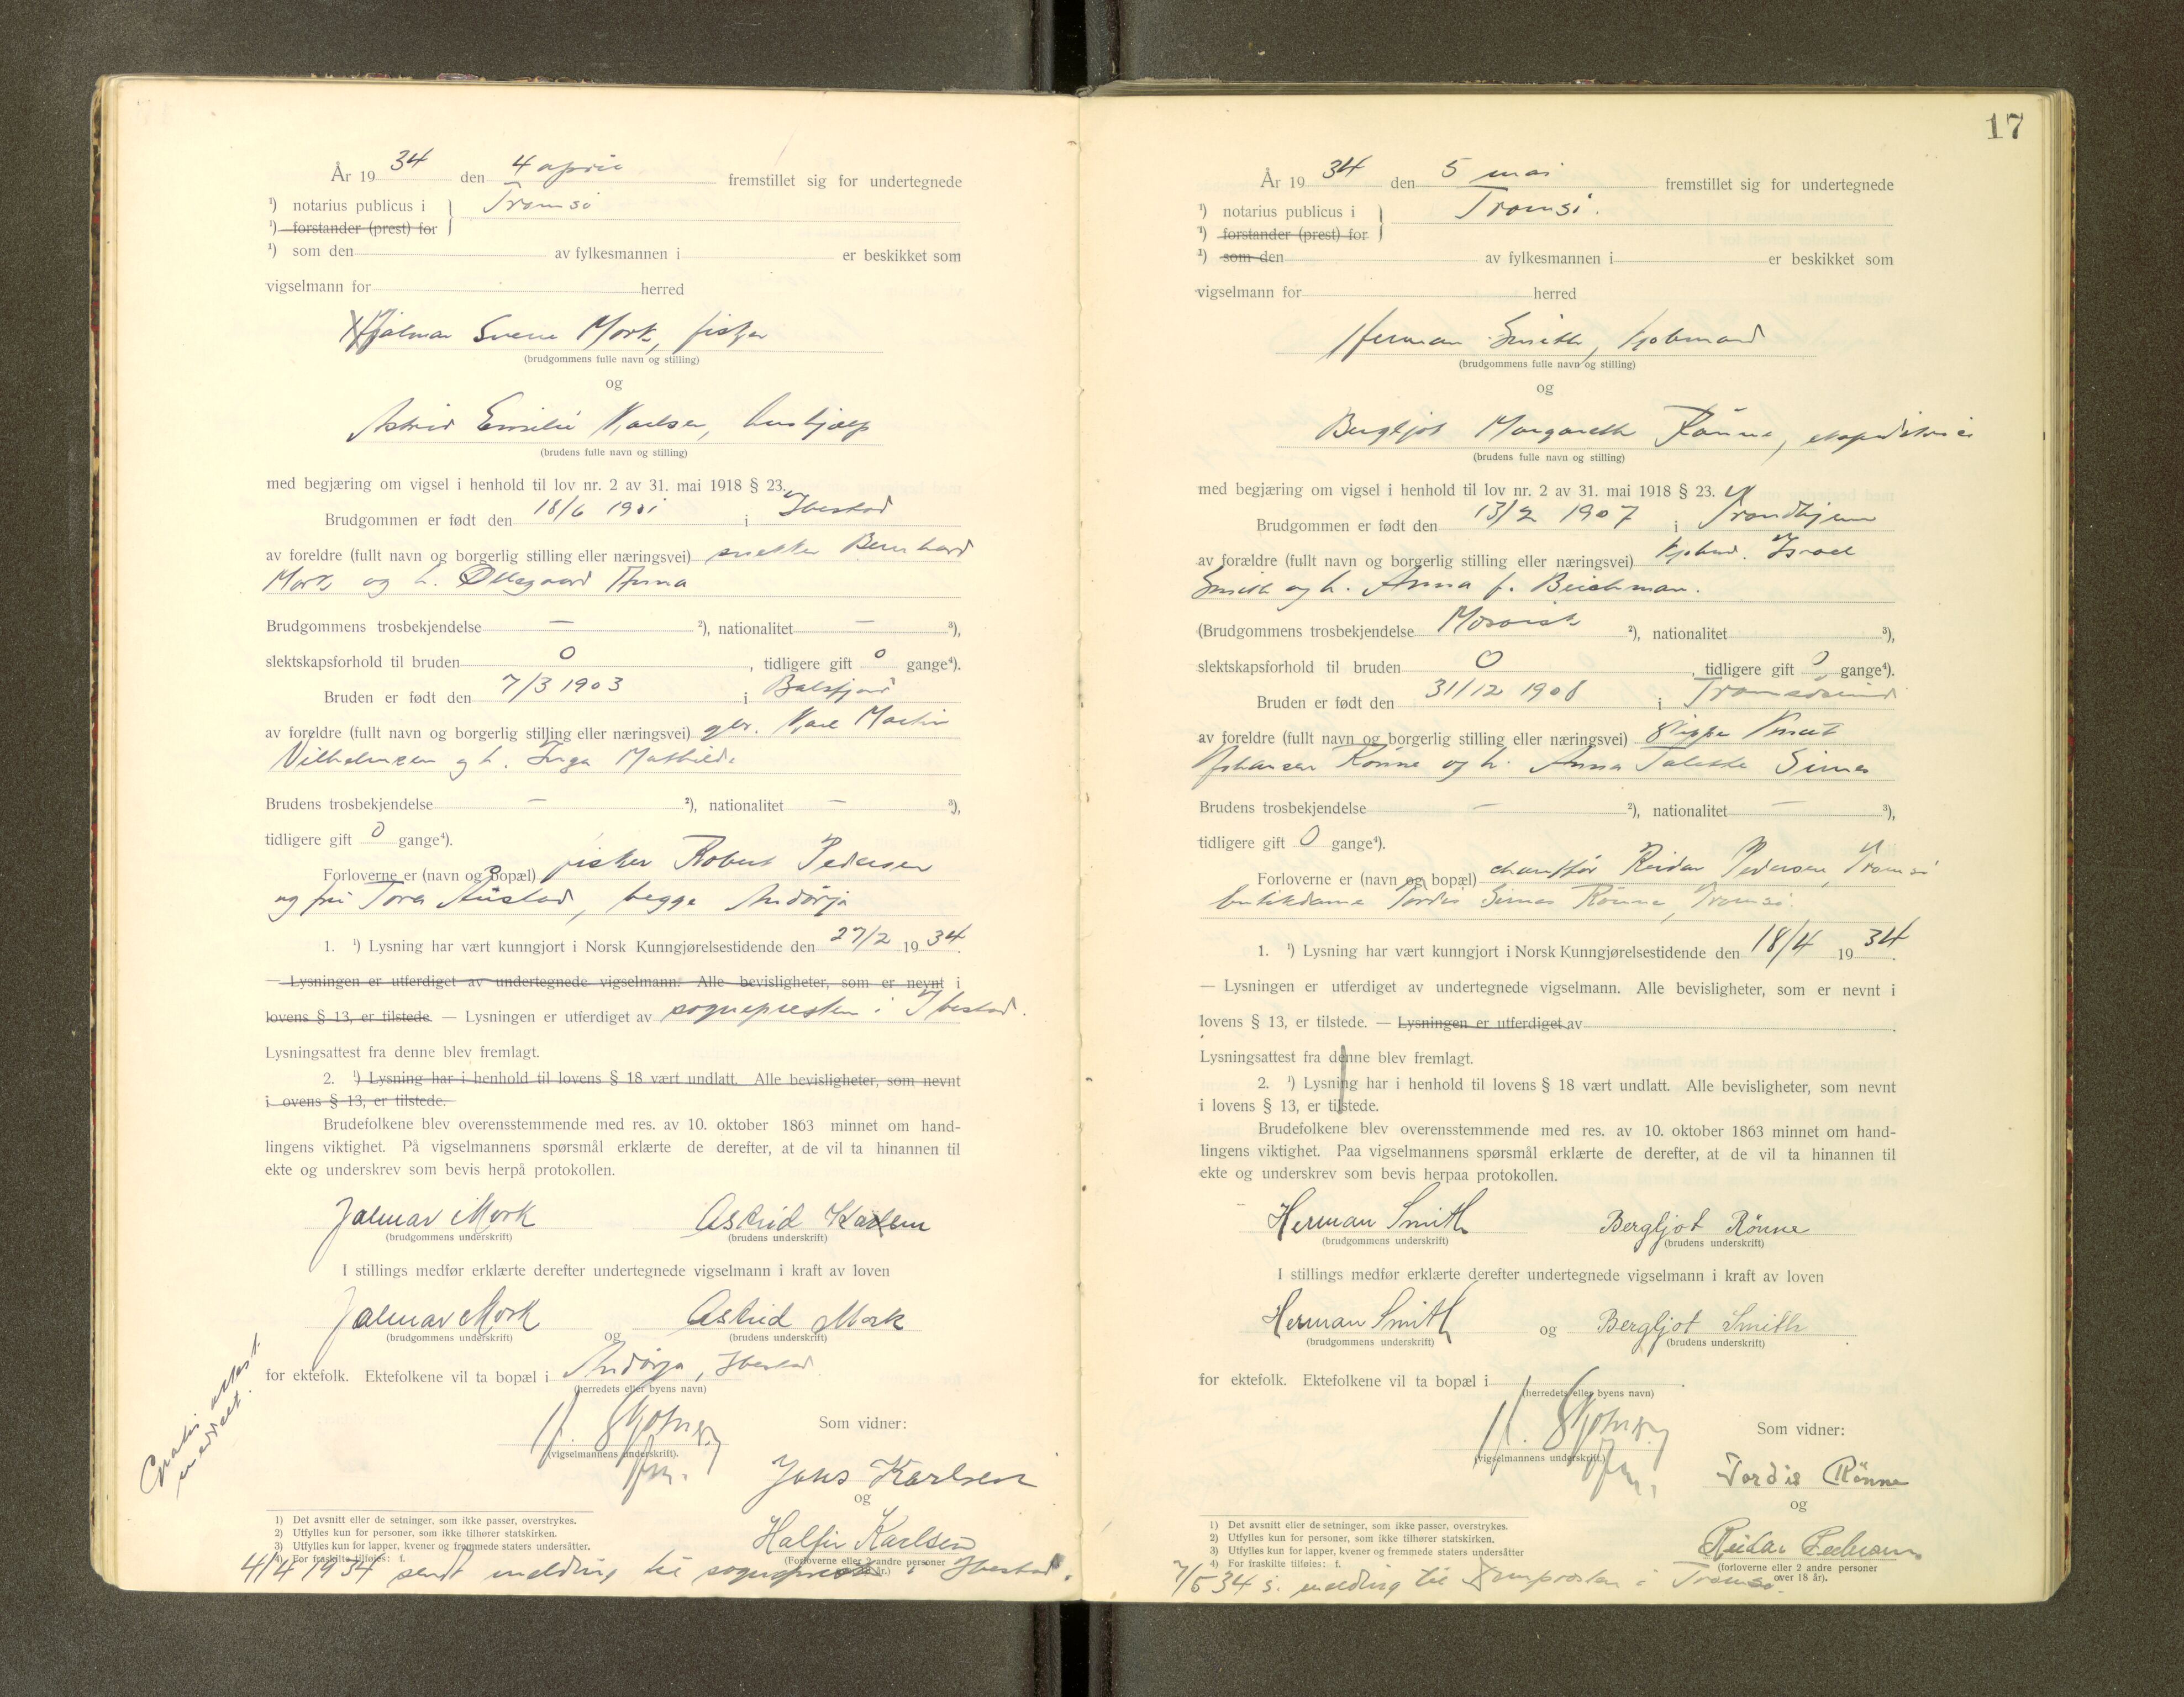 År 19 34 den 4 april fremstillet sig for undertegnede
¹) notarius publicus i } Tromsö
¹) forstander (prest) for
¹) som den av fylkesmannen i er beskikket som
vigselmann for herred
Hjalmar Sverre Mork, fisker
(brudgommens fulle navn og stilling)
og
Astrid Emilie Karlsen, hushjælp
(brudens fulle navn og stilling)
med begjæring om vigsel i henhold til lov nr. 2 av 31. mai 1918 § 23.
Brudgommen er født den 18/6 1901 i Ibestad
av foreldre (fullt navn og borgerlig stilling eller næringsvei) snekker Bernhard
Mork og h. Ollegaard Anna
Brudgommens trosbekjendelse — ²), nationalitet — ³),
slektskapsforhold til bruden 0, tidligere gift 0 gange⁴).
Bruden er født den 7/3 1903 i Balsfjord
av foreldre (fullt navn og borgerlig stilling eller næringsvei) gbr. Karl Martin
Vilhelmsen og h. Inga Mathilde
Brudens trosbekjendelse — ²), nationalitet — ³),
tidligere gift 0 gange⁴).
Forloverne er (navn og bopæl) fisker Robert Pedersen
og frk Tora Austad, begge Andörja
1. ¹) Lysning har vært kunngjort i Norsk Kunngjørelsestidende den 27/2 19 34.
— Lysningen er utferdiget av undertegnede vigselmann. Alle bevisligheter, som er nevnt i
lovens § 13, er tilstede. — Lysningen er utferdiget av sognepresten i Ibestad.
Lysningsattest fra denne blev fremlagt.
2. ¹) Lysning har i henhold til lovens § 18 vært undlatt. Alle bevisligheter, som nevnt
i ovens § 13, er tilstede.
Brudefolkene blev overensstemmende med res. av 10. oktober 1863 minnet om hand-
lingens viktighet. På vigselmannens spørsmål erklærte de derefter, at de vil ta hinannen til
ekte og underskrev som bevis herpå protokollen.
Jalmar Mork Astrid Karlsen
(brudgommens underskrift) (brudens underskrift)
I stillings medfør erklærte derefter undertegnede vigselmann i kraft av loven
Jalmar Mork og Astrid Mork
(brudgommens underskrift) (brudens underskrift)
for ektefolk. Ektefolkene vil ta bopæl i Andörja, Ibestad
(herredets eller byens navn)
Gratis attest
meddelt.
Som vidner:
(vigselmannens underskrift).
Jens Karlsen
og
Halfir Karlsen
(Forloverne eller 2 andre personer
1) Det avsnitt eller de setninger, som ikke passer, overstrykes.
2) Utfylles kun for personer, som ikke tilhører statskirken.
3) Utfylles kun for lapper, kvener og fremmede staters undersåtter.
4) For fraskilte tilføies: f.
4/4 1934 sendt melding til sogneprest i Ibestad.
17
År 19 34 den 5 mai fremstillet sig for undertegnede
¹) notarius publicus i } Tromsö.
¹) forstander (prest) for
¹) som den av fylkesmannen i er beskikket som
vigselmann for herred
Herman Smith, kjobmand
(brudgommens fulle navn og stilling)
og
Bergljot Margareth Rönne, ekspeditrice
(brudens fulle navn og stilling)
med begjæring om vigsel i henhold til lov nr. 2 av 31. mai 1918 § 23.
Brudgommen er født den 13/2 1907 i Trondhjem
av forældre (fullt navn og borgerlig stilling eller næringsvei) kjøbmd. Israel
Smith og h. Anna f. Beichman.
(Brudgommens trosbekjendelse Mosaisk ²), nationalitet ³),
slektskapsforhold til bruden 0, tidligere gift 0 gange⁴).
Bruden er født den 31/12 1908 i Tromsösund
av foreldre (fullt navn og borgerlig stilling eller næringsvei) skipper Knut
Johansen Rönne og h. Anna Simes
Brudens trosbekjendelse — ²), nationalitet — ³),
tidligere gift 0 gange⁴).
Forloverne er (navn og bopæl) chaufför Reidar Pedersen, Tromsö
butikdame Tordis Simes Rönne, Tromsö.
1. ¹) Lysning har vært kunngjort i Norsk Kunngjørelsestidende den 18/4 19 34.
— Lysningen er utferdiget av undertegnede vigselmann. Alle bevisligheter, som er nevnt i
lovens § 13, er tilstede. — Lysningen er utferdiget av
Lysningsattest fra denne blev fremlagt.
2. ¹) Lysning har i henhold til lovens § 18 vært undlatt. Alle bevisligheter, som nevnt
i lovens § 13, er tilstede.
Brudefolkene blev overensstemmende med res. av 10. oktober 1863 minnet om hand-
lingens viktighet. Paa vigselmannens spørsmål erklærte de derefter, at de vil ta hinannen til
ekte og underskrev som bevis herpaa protokollen.
Herman Smith Bergljot Rönne
(brudgommens underskrift) (brudens underskrift)
I stillings medfør erklærte derefter undertegnede vigselmann i kraft av loven
Herman Smith og Bergljot Smith
(brudgommens underskrift) (brudens underskrift)
for ektefolk. Ektefolkene vil ta bopæl i
(herredets eller byens navn)
Som vidner:
(vigselmannens underskrift.)
Tordis Rönne
og
Reidar Pedersen
(forloverne eller 2 andre personer
over 18 år).
1) Det avsnitt eller de setninger, som ikke passer, overstrykes.
2) Utfylles kun for personer, som ikke tilhører statskirken.
3) Utfylles kun for lapper, kvener og fremmede staters undersåtter
4) For fraskilte tilføies: f.
7/5 34 s. melding til Domprosten i Tromsö.